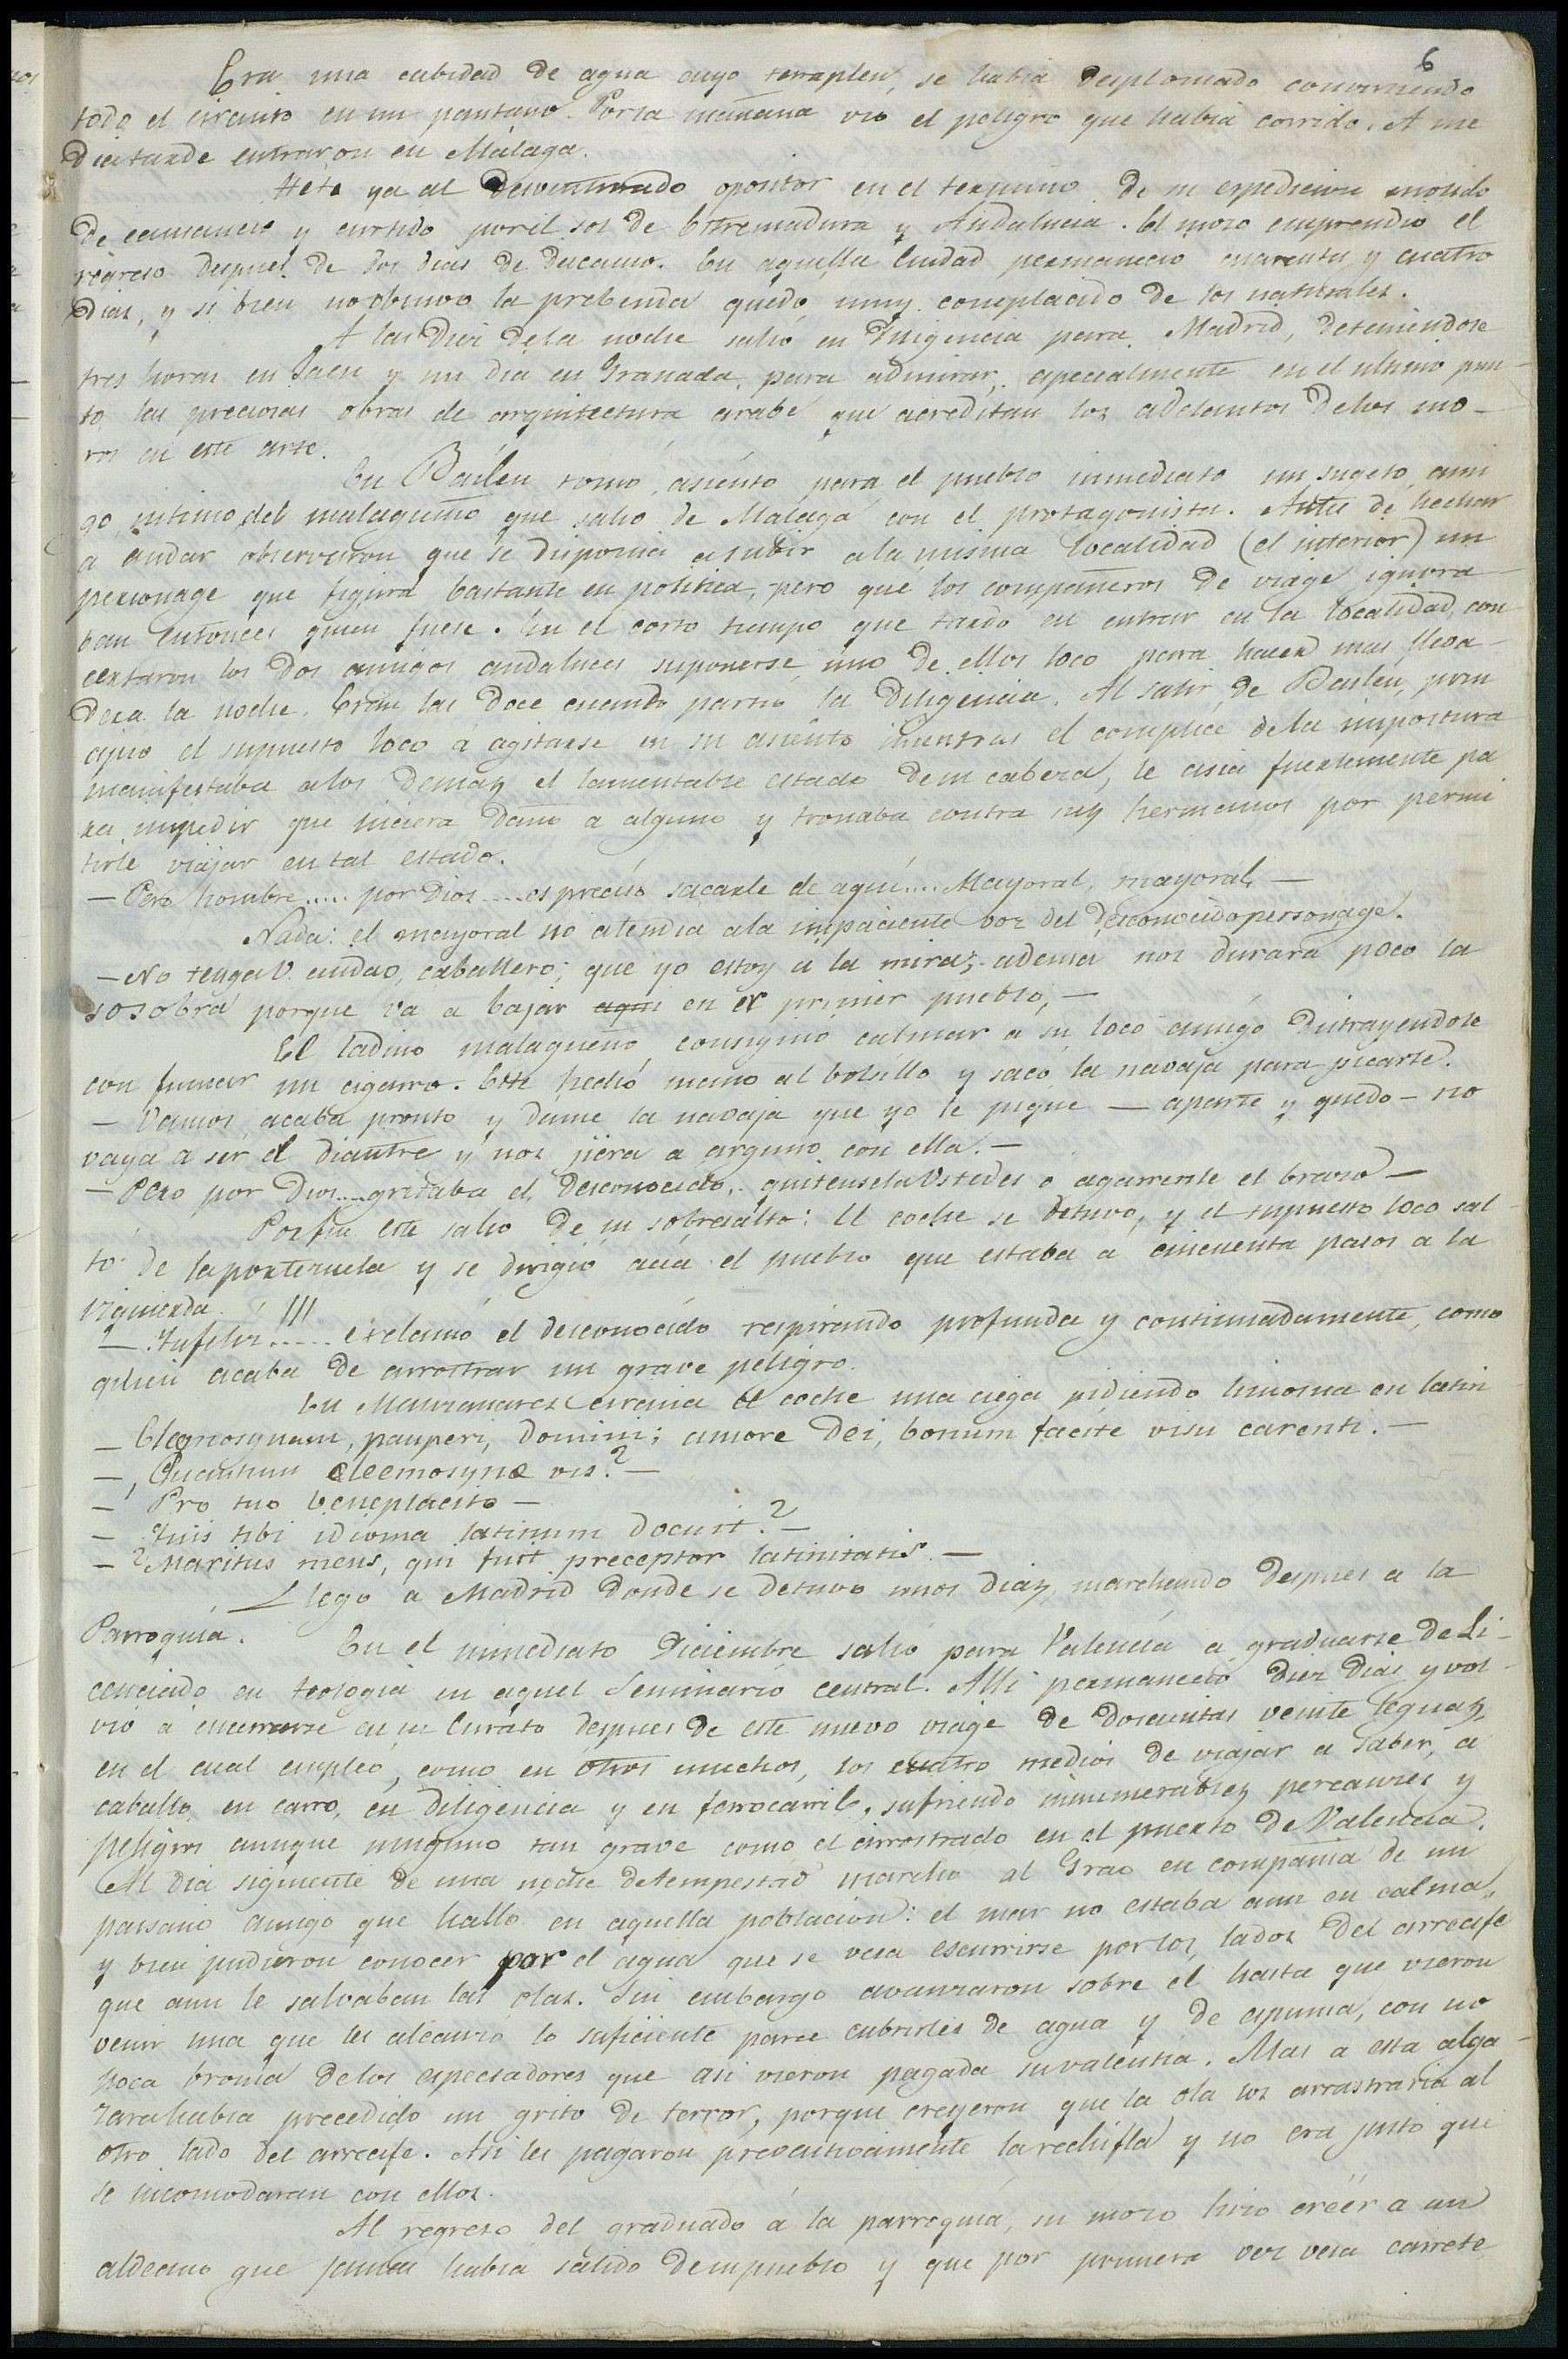 6
Era una cabidad de agua cuyo terraplen, se habia desplomado convirtiendo
todo el circuito en un pantano. Por la mañana vio el peligro que habia corrido. A me
dia tarde entraron en Málaga.
Hete ya al desventurado opositor en el termino de su espedicion molido
de cansancio y curtido por el sol de Estremadura y Andalucia. El moso emprendio el
regreso despues de dos dias de descanso. En aquella Ciudad permanecio cuarenta y cuatro
dias, y si bien no obtuvo la prebenda quedó muy complacido de los naturales.
A las diez de la noche salió en diligencia para Madrid, deteniendose
tres horas en Jaen y un dia en Granada, para admirar, especialmente en el ultimo pun-
to las preciosas obras de arquitectura arabe que acreditan los adelantos de los mo-
ros en este arte.
En Bailen tomó, asiento para el pueblo inmediato un sugeto, ami
go intimo del malagueño que salio de Malaga con el protagonista. Antes de hechar
a andar observaron que se disponia a subir a la misma localidad (el interior) un
personage que figura bastante en politica, pero que los compañeros de viage ignora-
ban entonces quien fuese. En el corto tiempo que tardó en entrar en la localidad, con-
certaron los dos amigos andaluces suponerse, uno de ellos loco para hacer mas lleva-
dera la noche. Eran las doce cuando partio la diligencia. Al salir de Bailen, prin
cipio el supuesto loco a agitarse en su asiento mientras el complice de la impostura
manifestaba a los demas el lamentable estado de su cabeza, le asia fuertemente pa
ra impedir que hiciera daño a alguno y tronaba contra sus hermanos por permi
tirle viajar en tal estado.
— Pero hombre..... por Dios.... es preciso sacarle de aqui.... Mayoral, mayoral, —
Nada: el mayoral no atendia a la impaciente voz del desconocido personage.
— No tenga V. cudiao, caballero; que yo estoy a la mira; ademas nos durara poco la
sosobra porque va a bajar aqui en er primer pueblo, —
El ladino malagueño consiguió calmar a su loco amigo distrayendole
con fumar un cigarro. Este hechó mano al bolsillo y sacó la navaja para picarle.
— Vamos, acaba pronto y dame la navaja que yo le pique — aparte y quedo — no
vaya a ser el diantre y nos jiera a arguno con ella. —
— Pero por Dios.... gritaba el desconocido.. quitensela Ustedes o agarrenle el brazo —
Por fin este salio de su sobresalto: El coche se detuvo, y el supuesto loco sal
tó de la portezuela y se dirigió acia el pueblo que estaba a cincuenta pasos a la
izquierda.
— Uufff..... !!! exclamó el desconocido respirando profunda y continuadamente, como
quien acaba de arrostrar un grave peligro.
En Manzanares circuia el coche una ciega pidiendo limosna en latin
— Elemosynam, pauperi, domini; amore Dei, bonum facite visu carenti. —
— ¿Quantum eleemosynæ vis? —
— Pro tuo beneplacito —
— Quis tibi idioma latinum docuit? —
— Maritus meus, qui fuit preceptor latinitatis. —
Llegó a Madrid donde se detuvo unos dias, marchando despues a la
Parroquia.
En el inmediato Diciembre salió para Valencia a graduarse de Li-
cenciado en teologia en aquel Seminario central. Alli permaneció diez dias y vol-
vió a encerrarse en su Curato despues de este nuevo viage de doscientas veinte leguas,
en el cual empleó, como en otros muchos, los cuatro medios de viajar a saber, a
caballo, en carro, en diligencia y en ferrocarril, sufriendo innumerables percances y
peligros aunque ninguno tan grave como el arrostrado en el puerto de Valencia.
Al dia siguiente de una noche de tempestad marchó al Grao en compañia de un
paisano amigo que halló en aquella poblacion: el mar no estaba aun en calma,
y bien pudieron conocer por el agua que se veia escurrirse por los lados del arrecife
que aun le salvaban las olas. Sin embargo avanzaron sobre el hasta que vieron
venir una que les alcanzo lo suficiente para cubrirles de agua y de espuma, con no
poca broma de los espectadores que asi vieron pagada su valentia. Mas a esta alga-
zara habia precedido un grito de terror, porque creyeron que la ola los arrastraria al
otro lado del arrecife. Asi les pagaron preventivamente la rechifla y no era justo que
se incomodaran con ellos.
Al regreso del graduado á la parroquia, su moso hizo creér a un
aldeano que jamas habia salido de su pueblo y que por primera vez veia carrete